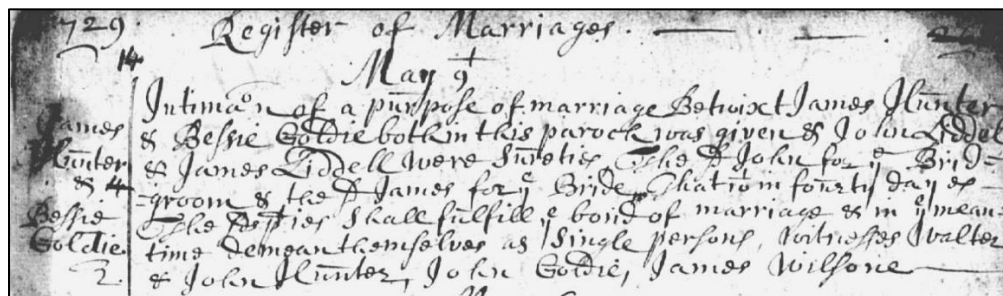 729 Register of Marriages
14
May 9
James Hunter & 4 Bessie Goldie 2
Intimaon of a purpose of marriage Betwixt James Hunter
& Bessie Goldie both in this paroch was given & John Liddel
& James Liddell were Sureties The sd John for ye Brid=
=groom & the sd James for ye Bride That in fourty dayes
The sd pties Shall fulfill ye bond of marriage & in ye mean
time demean themselves as Single persons, Witnesses Walter
& John Hunter, John Goldie, James Wilsone